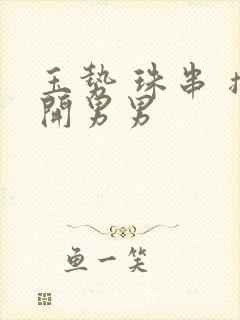 玉势 珠串
開男男
鱼一笑